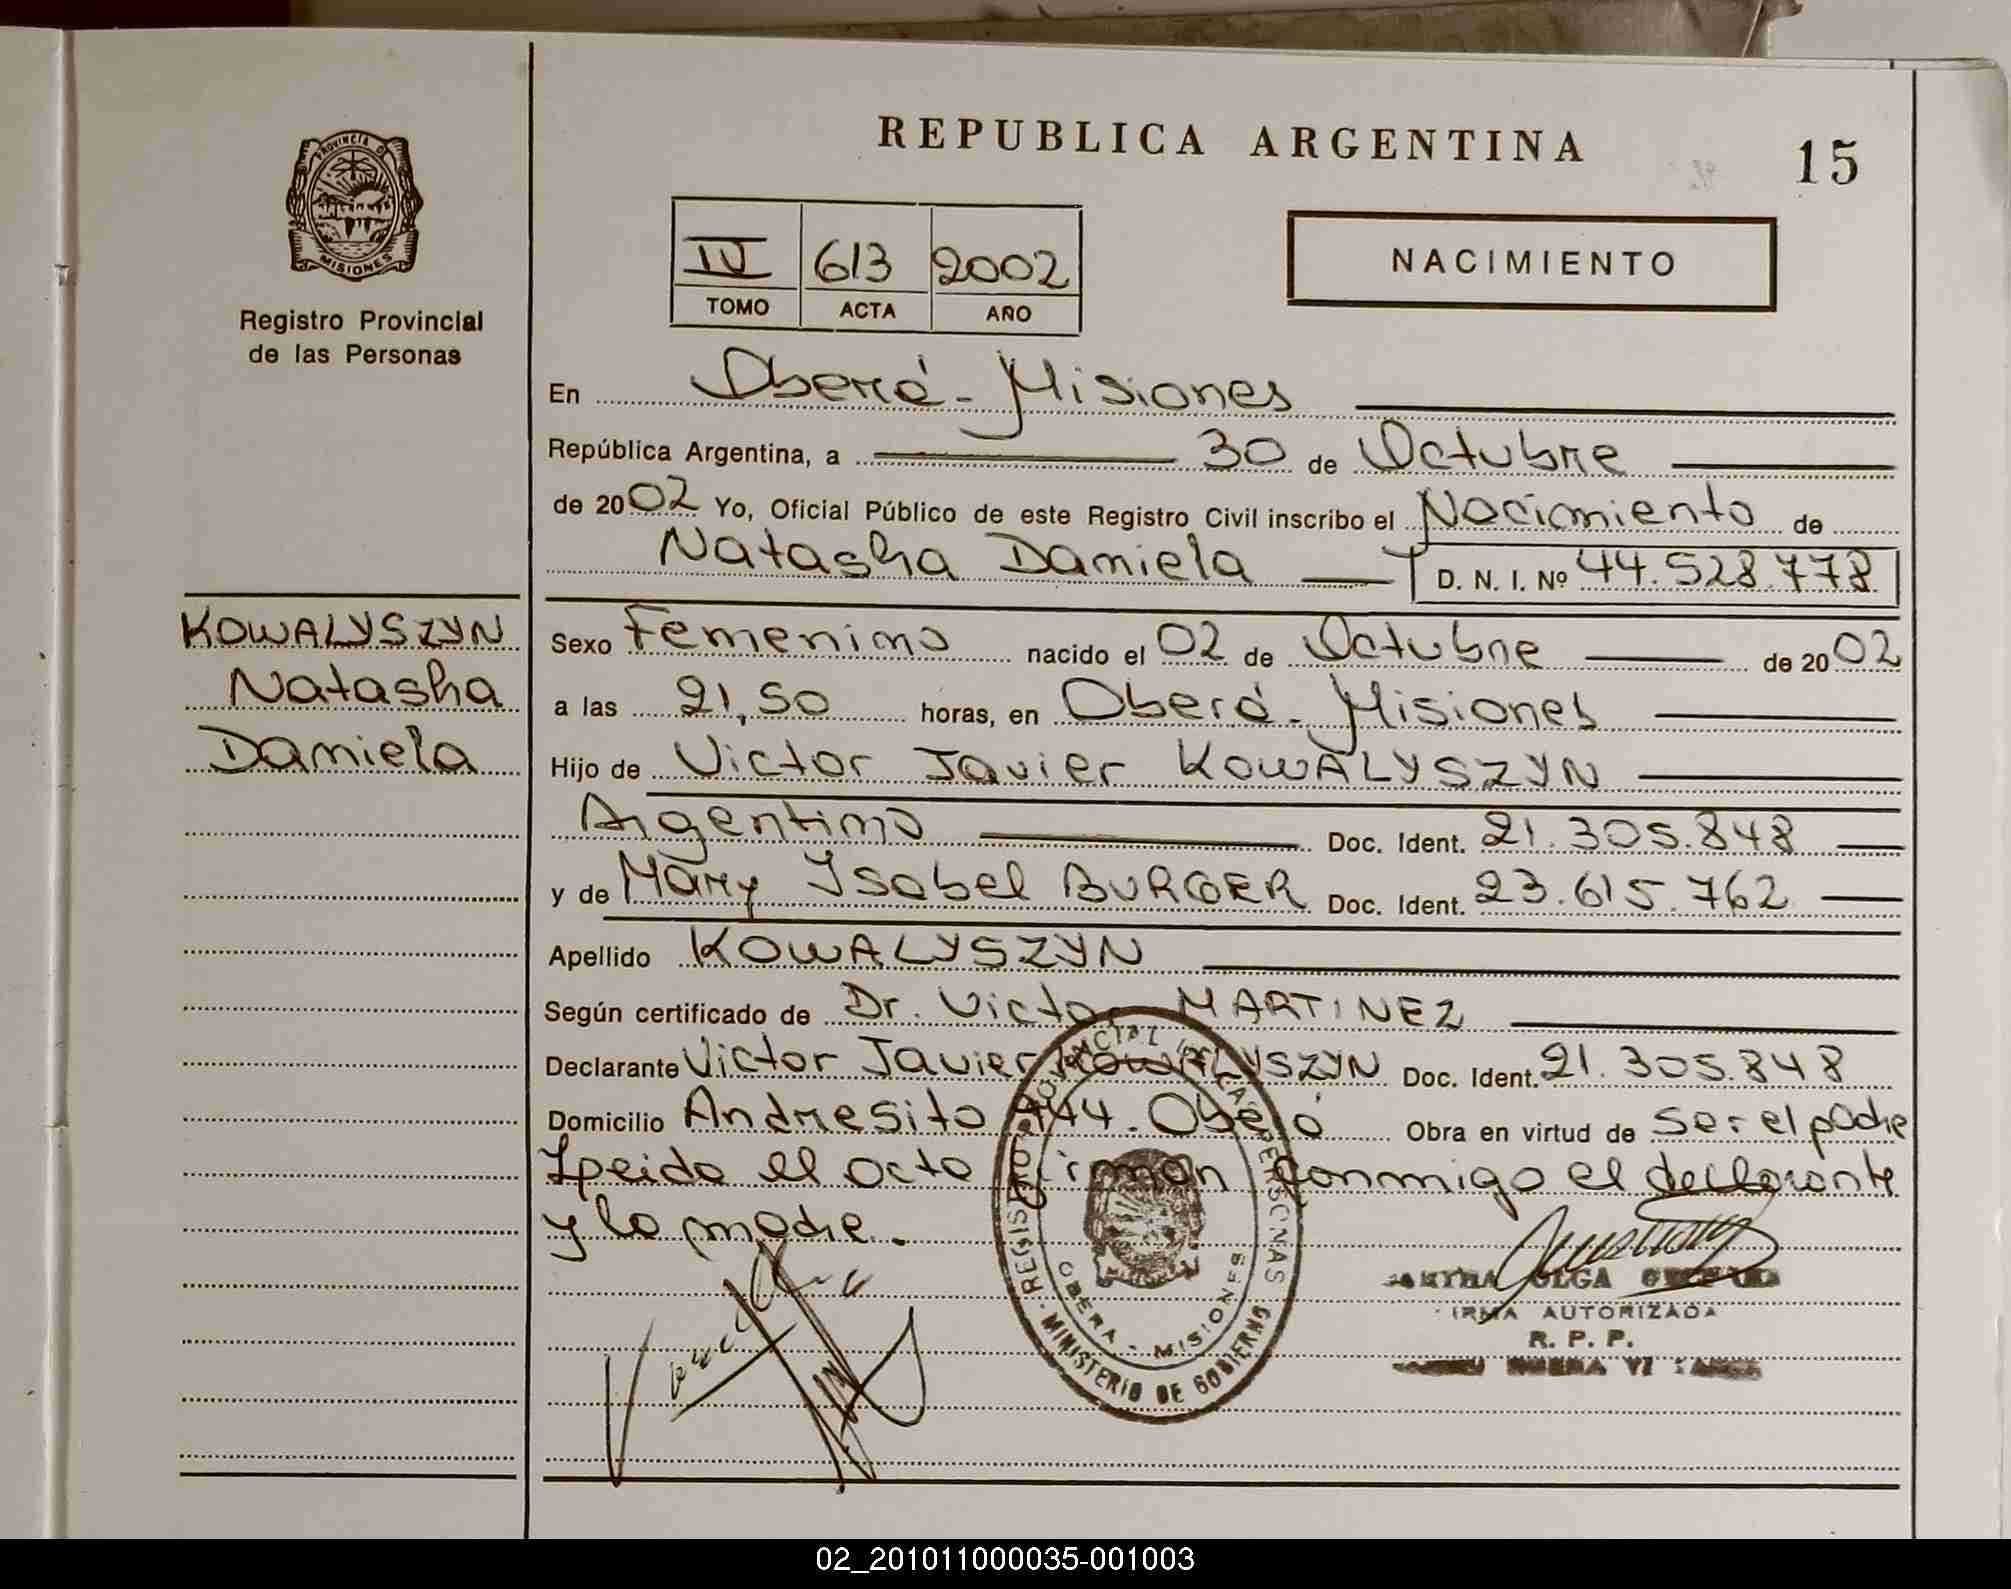 REPUBLICA ARGENTINA
15
PROVINCIA DE
MISIONES
Registro Provincial
de las Personas
IV 613 2002
TOMO ACTA AÑO
NACIMIENTO
En Oberá - Misiones
República Argentina, a 30 de Octubre
de 2002 Yo, Oficial Público de este Registro Civil inscribo el Nacimiento de
Natasha Daniela D. N. I. Nº 44.528.778
KOWALYSZYN
Natasha
Daniela
Sexo Femenino nacido el 02 de Octubre de 2002
a las 21,50 horas, en Oberá - Misiones
Hijo de Victor Javier KOWALYSZYN
Argentino Doc. Ident. 21.305.848
y de Mary Isabel BURGER Doc. Ident. 23.615.762
Apellido KOWALYSZYN
Según certificado de Dr. Victor MARTINEZ
Declarante Victor Javier KOWALYSZYN Doc. Ident. 21.305.848
Domicilio Andresito 444. Oberá Obra en virtud de ser el padre
Leida el acta firman conmigo el declarante
y la madre.
REGISTRO PROVINCIAL DE LAS PERSONAS
OBERA - MISIONES
MINISTERIO DE GOBIERNO
OLGA
FIRMA AUTORIZADA
R. P. P.
02_201011000035-001003